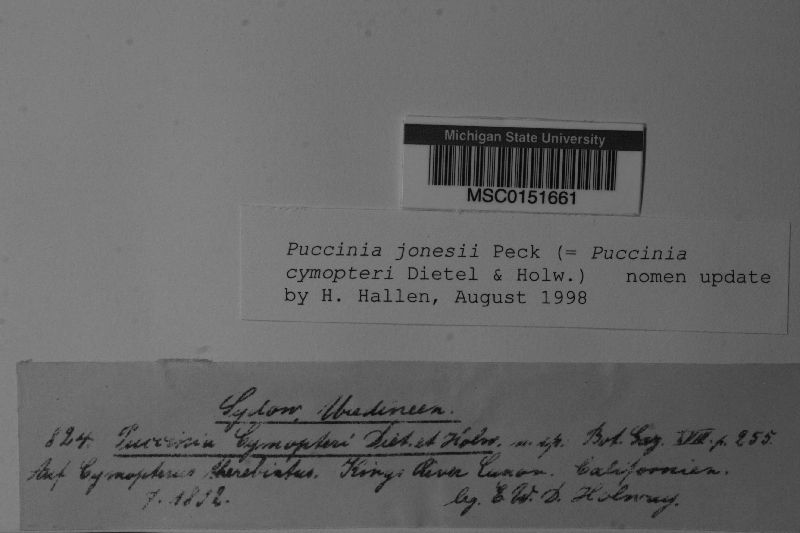 Michigan State University
MSC0151661
Puccinia jonesii Peck (= Puccinia
cymopteri Dietel & Holw.) nomen update
by H. Hallen, August 1998
Sydow, Uredineen.
824. Puccinia Cymopteri Diet. et Holw. n. sp. Bot. Gaz. p. 255.
Auf Cymopterus therebintus. Kings River Canon. Californien.
leg. E. W. D. Holway.